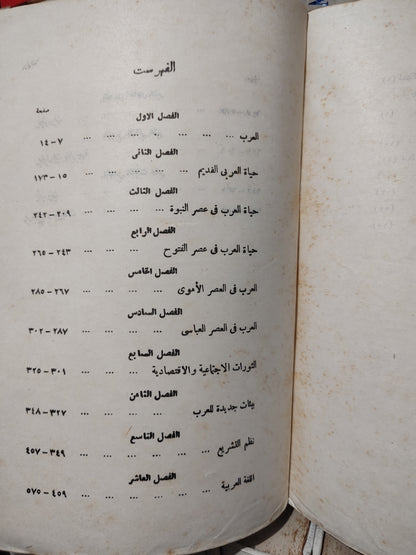 الفهرست
صفحة
الفصل الاول
العرب ... ... ... ... ... ... ٧ – ١٤
الفصل الثانى
حياة العربى القديم ... ... ... ... ١٥ – ١٧٣
الفصل الثالث
حياة العرب فى عصر النبوة ... ... ... ٢٠٩ – ٢٤٢
الفصل الرابع
حياة العرب فى عصر الفتوح ... ... ٢٤٣ – ٢٦٥
الفصل الخامس
العرب فى العصر الأموى ... ... ... ٢٦٧ – ٢٨٥
الفصل السادس
العرب فى العصر العباسى ... ... ... ٢٨٧ – ٣٠٢
الفصل السابع
الثورات الاجتماعية والاقتصادية ... ... ٣٠١ – ٣٢٥
الفصل الثامن
بيئات جديدة للعرب ... ... ... ٣٢٧ – ٣٤٨
الفصل التاسع
نظم التشريع ... ... ... ... ... ٣٤٩ – ٤٥٧
الفصل العاشر
اللغة العربية ... ... ... ... ... ٤٥٩ – ٥٧٥